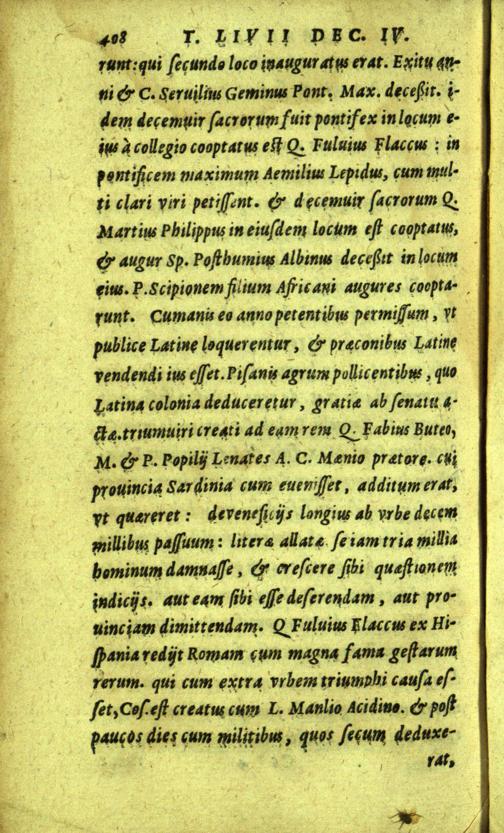 408 T. LIVII DEC. IV.
runt: qui secundo loco inauguratus erat. Exitu an-
ni & C. Seruilius Geminus Pont. Max. deceßit. i-
dem decemuir sacrorum fuit pontifex in locum e-
ius à collegio cooptatus est Q. Fuluius Flaccus: in
pontificem maximum Aemilius Lepidus, cum mul-
ti clari viri petissent. & decemuir sacrorum Q.
Martius Philippus in eiusdem locum est cooptatus,
& augur Sp. Posthumius Albinus deceßit in locum
eius. P. Scipionem filium Africani augures coopta-
runt. Cumanis eo anno petentibus permissum, vt
publice Latine loquerentur, & præconibus Latine
vendendi ius esset. Pisanis agrum pollicentibus, quo
Latina colonia deduceretur, gratiæ ab senatu a-
ctæ. triumuiri creati ad eam rem Q. Fabius Buteo,
M. & P. Popilij Lenates A. C. Mænio prætore. cui
prouincia Sardinia cum euenisset, additum erat,
vt quæreret: de veneficijs longius ab vrbe decem
millibus passuum: literæ allatæ se iam tria millia
hominum damnasse, & crescere sibi quæstionem
indicijs. aut eam sibi esse deserendam, aut pro-
uinciam dimittendam. Q Fuluius Flaccus ex Hi-
spania redijt Romam cum magna fama gestarum
rerum. qui cum extra vrbem triumphi causa es-
set, Cos. est creatus cum L. Manlio Acidino. & post
paucos dies cum militibus, quos secum deduxe-
rat,